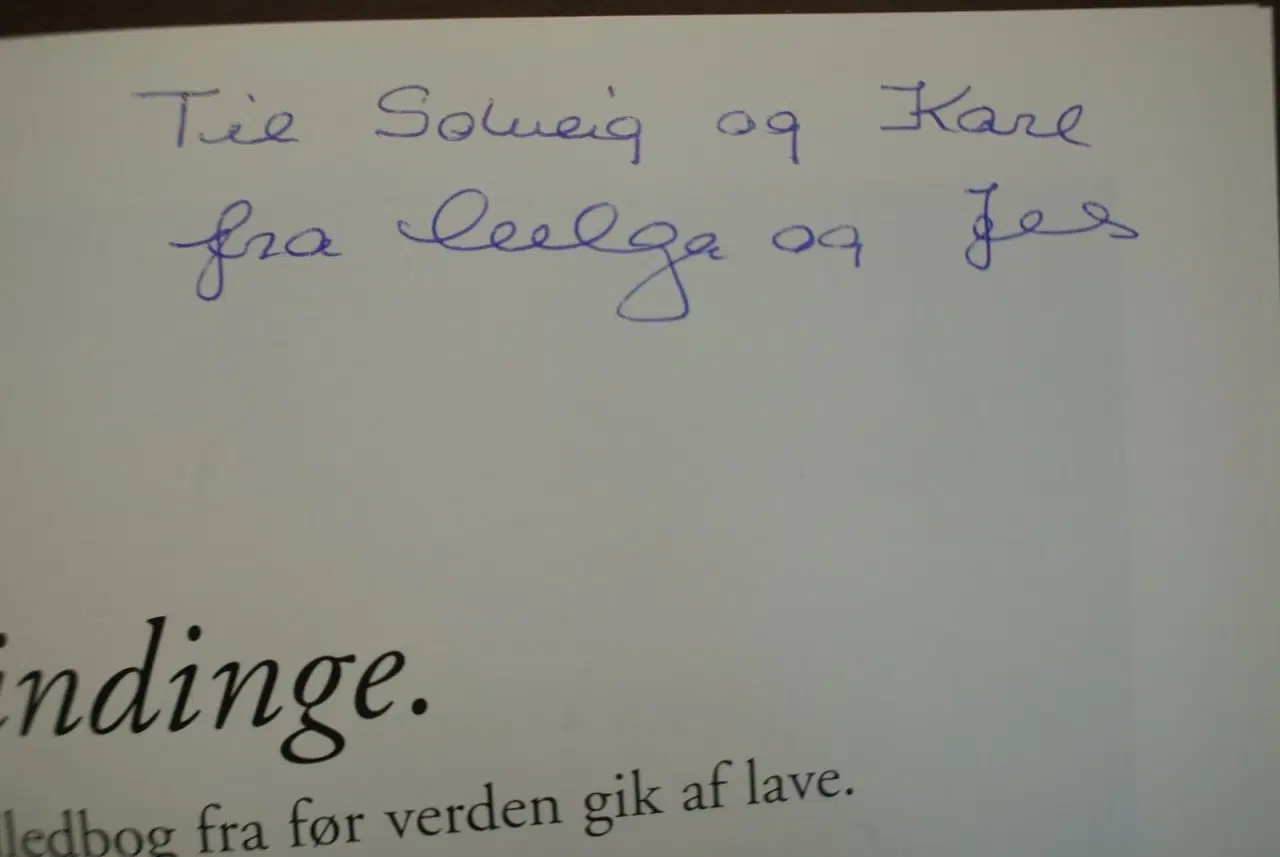 Til Solveig og Kare
fra Helga og Jes
indinge.
lledbog fra før verden gik af lave.